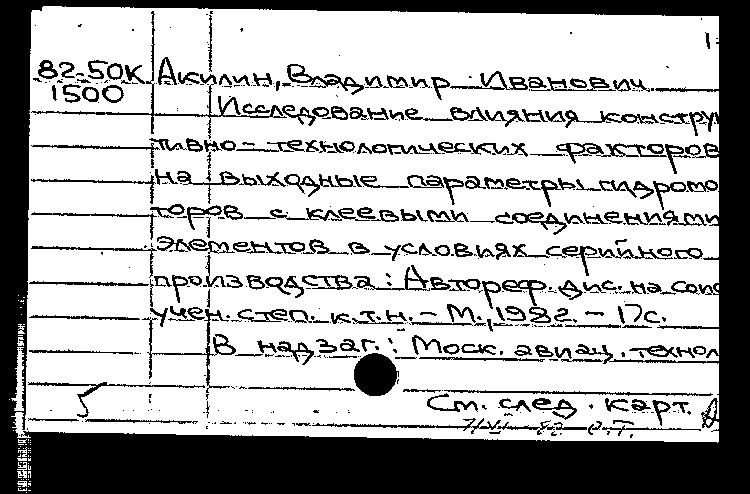 82-50К Акилин, Владимир Иванович
1500 Исследование влияния констру
тивно-технологических факторов
на выходные параметры гидромо
торов с клеевыми соединениями
элементов в условиях серийного
производства: Автореф. дис. на соис
учен. степ. к.т.н. - М., 1982. - 17с.
В надзаг.: Моск. авиац. технол
5 См. след. карт.